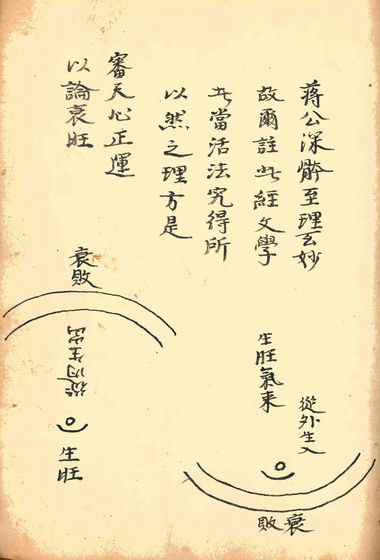 蔣公深髓至理玄妙
故爾註此經文學
此當活法究得所
以然之理方是
審天心正運
以論衰旺
從外生入
生旺氣来
衰敗
衰敗
從內生出
生旺